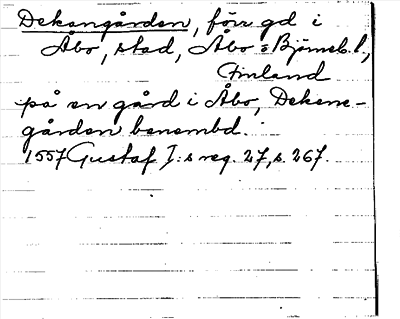 Dekangården, förr gd i
Åbo, stad, Åbo o Bjömeb. l.,
Finland
på en gård i Åbo, Dekene-
gården benembd.
1557 Gustaf I:s reg. 27, s. 267.